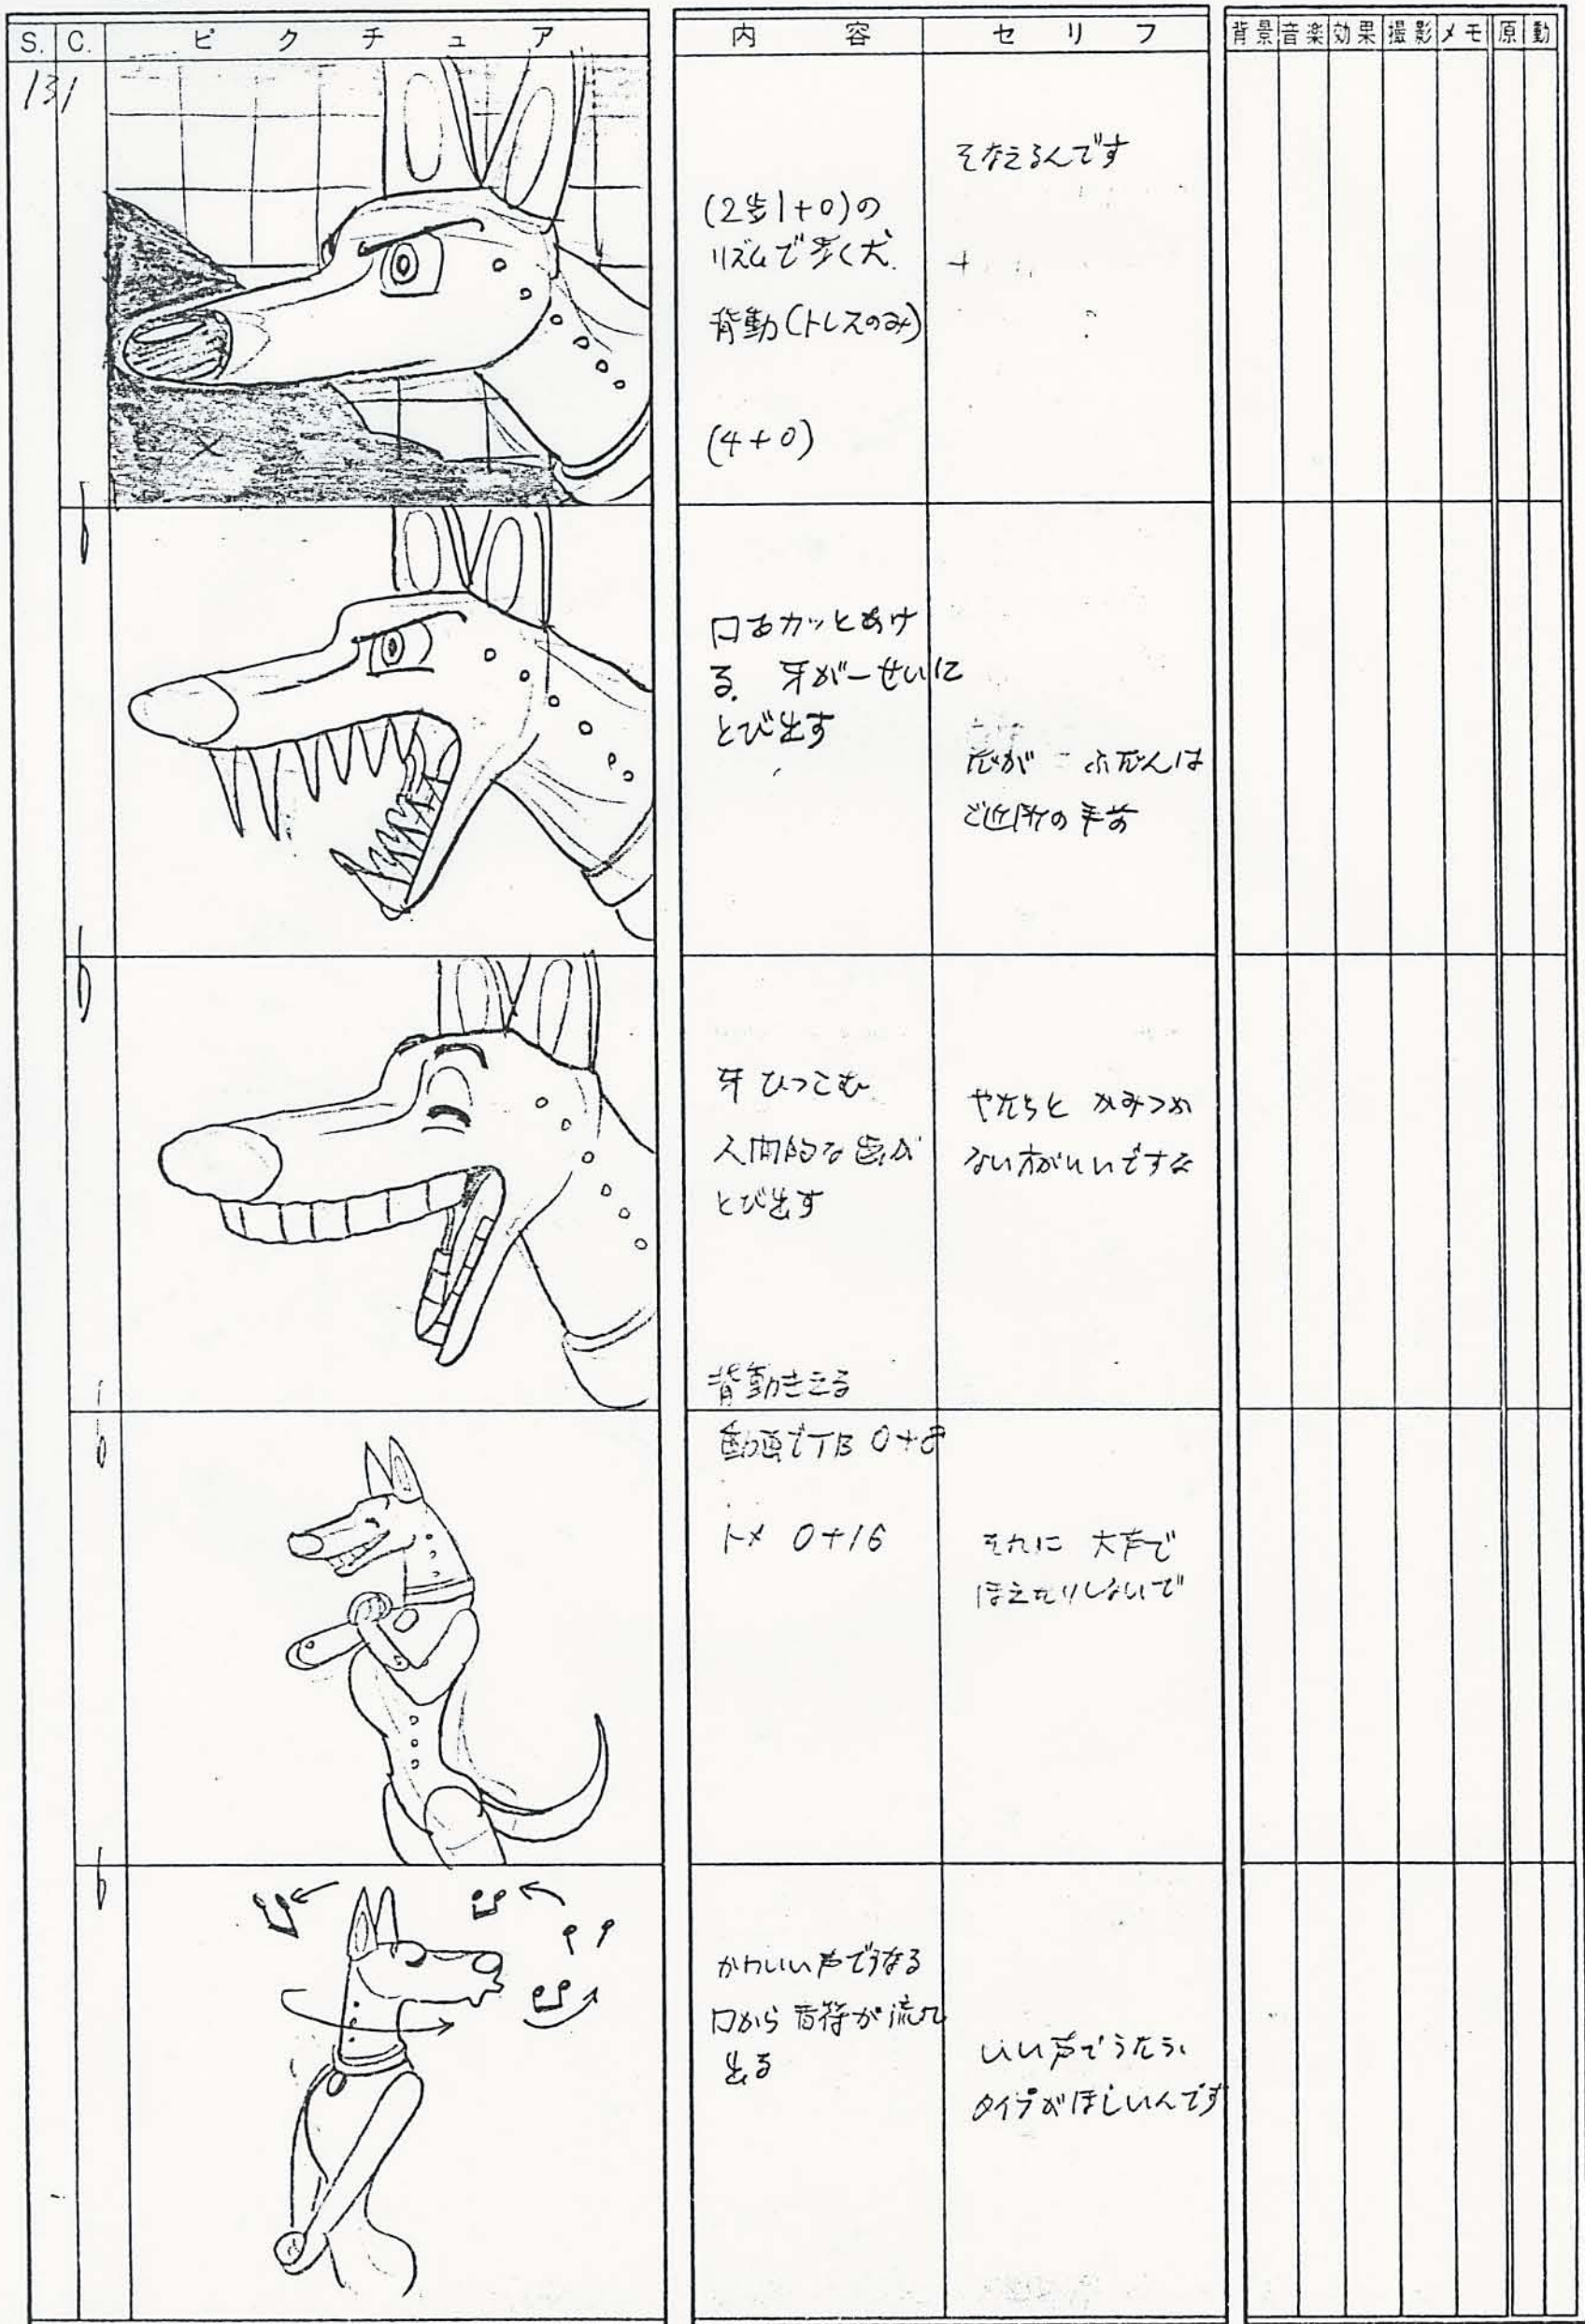 S. C. ピクチュア 内容 セリフ 背景 音楽 効果 撮影 メモ 原 動
131
そなえるんです
(2歩1+0)の
リズムで歩く犬
背動(トレスのみ)
(4+0)
口おカッとあけ
る. 牙が一せいに
とび出す
だが ふだんは
ご近所の手前
牙ひっこむ
人間的な歯が
とび出す
背動きえる
やたらと かみつか
ない方がいいですな
動画でTB 0+8
トメ 0+16
それに 大声で
ほえたりしないで
かわいい声でうなる
口から音符が流れ
出る
いい声でうたう、
タイプがほしいんです